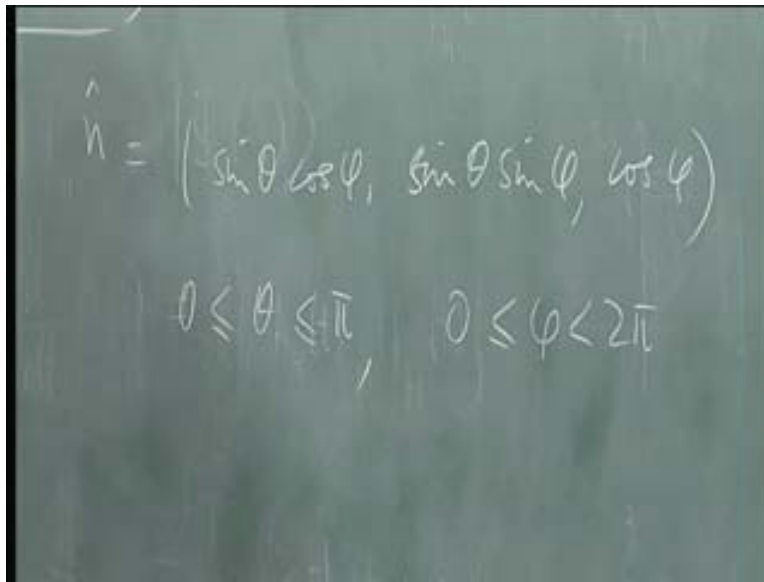 n̂ = (sin θ cos φ, sin θ sin φ, cos φ)
0 ≤ θ ≤ π, 0 ≤ φ < 2π